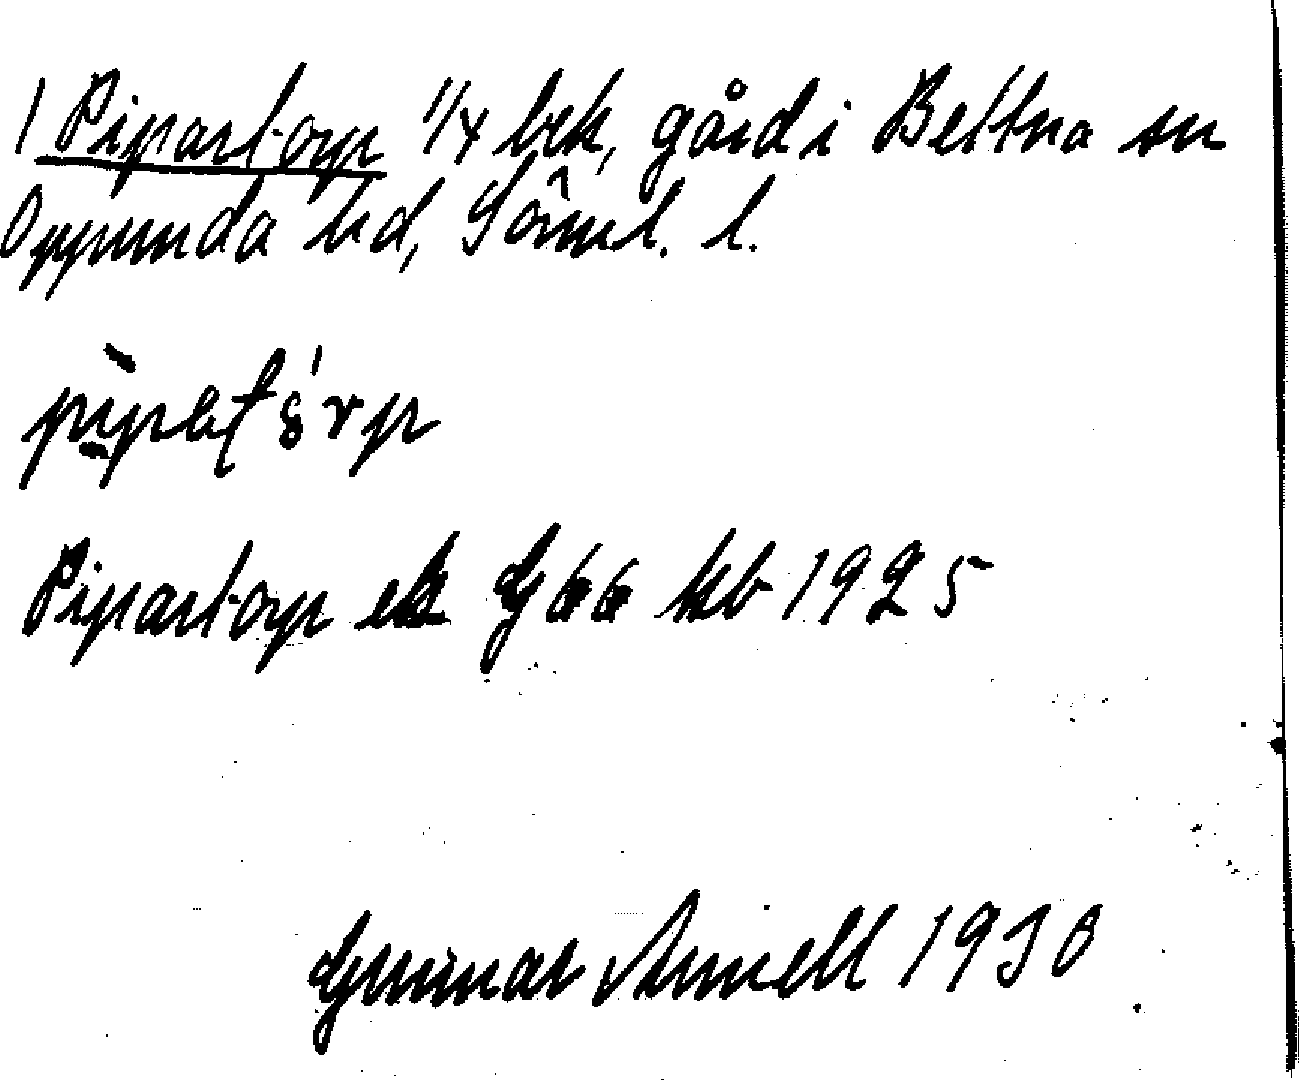 1 Pipartorp 1/4 bek, gård i Bettna sn
Oppunda hd, Söml. l.
Pipartorp ek G 66 kb 1925
Gunnar Arnell 1930